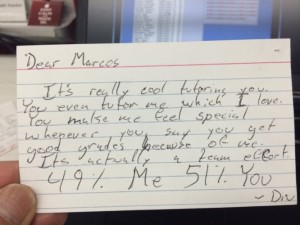 Dear Marcos
It's really cool tutoring you.
You even tutor me which I love.
You make me feel special
whenever you say you get
good grades because of me.
Its actually a team effort.
49% Me 51% You
~ Div